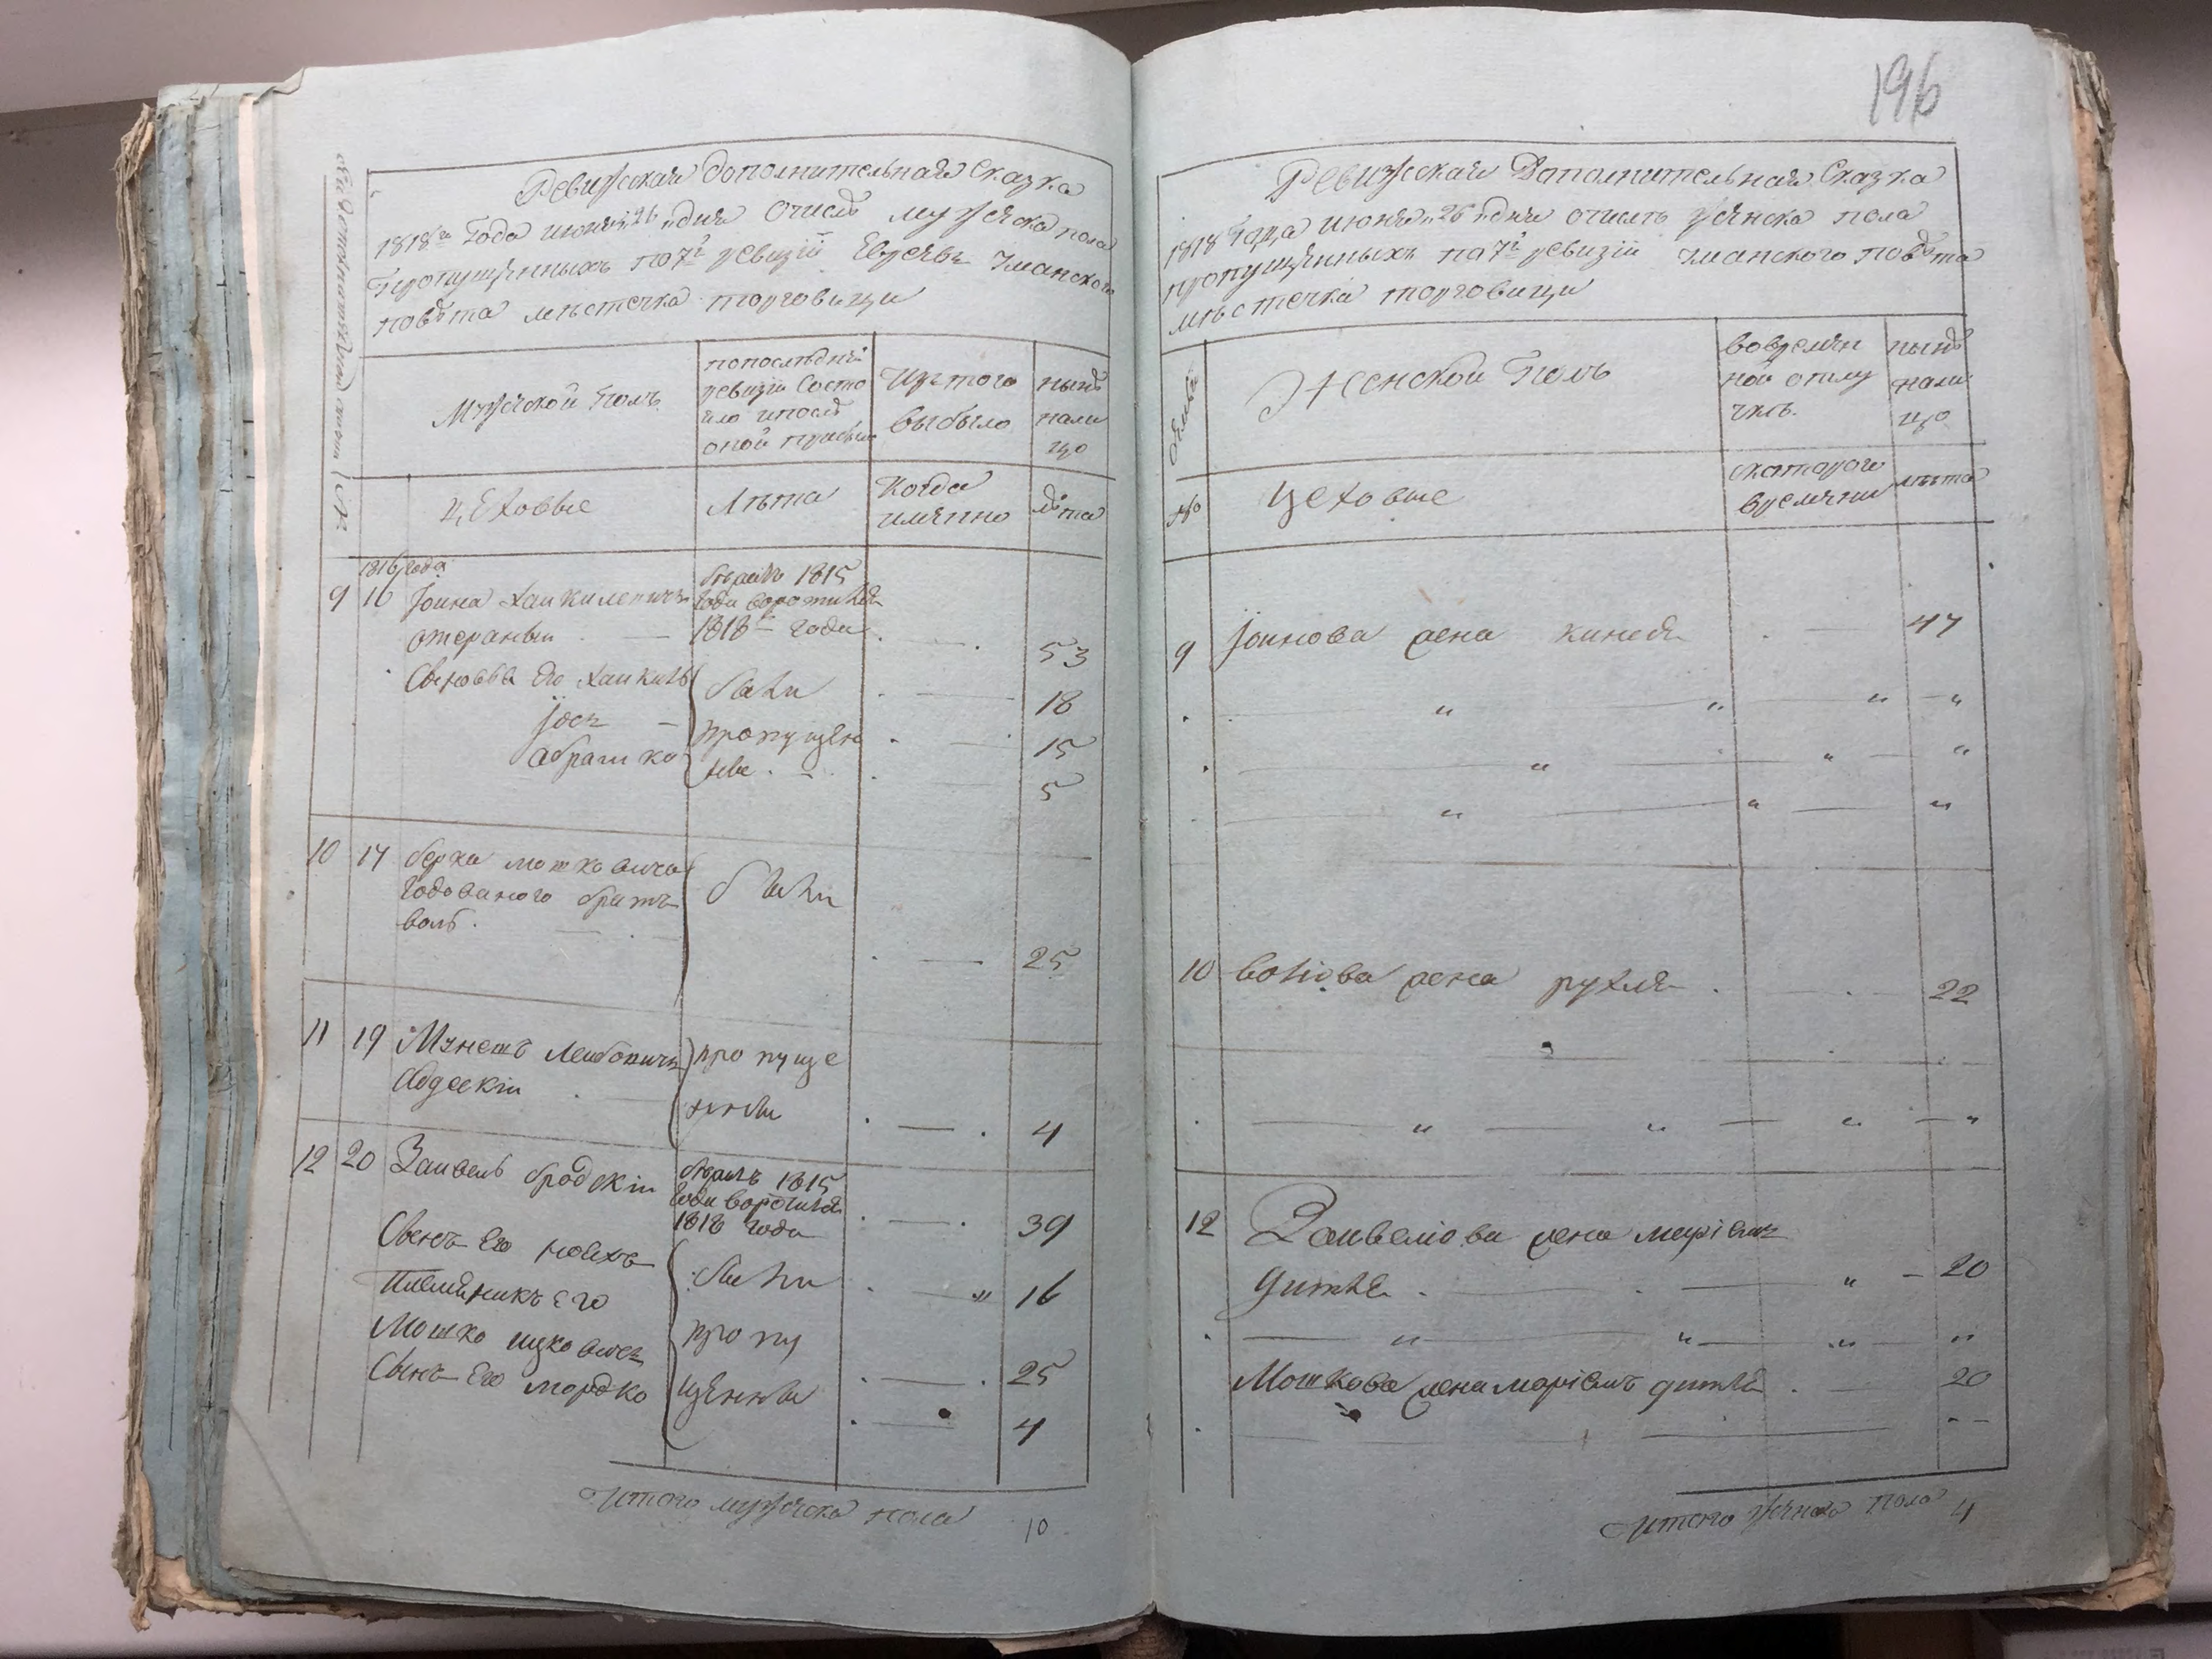 Ревизская Дополнительная Сказка
1818го Года июня 26 дня о числе мужеска пола
Пропущенныхъ по 7й ревизiи Евреевъ Уманского
повѣта мѣстечка торговици
Мужеской полъ
попослѣдней
ревизiи Состо
яло ипослѣ
оной прибыло
Изтого
выбыло
нынѣ
нали
цо
№
цеховые
Лѣта
Когда
имянно
Лѣта
1816 года
9 16 Iоина Хаикилевичъ
1815
года воротился
1818го года
53
Сыновья Его Хаикель
были
18
Iось
пропущен
15
абрашко
ные
5
10 17 берка мошковича
годованого братъ
воль
были
25
11 19 Лейбовичъ
пропуще
нны
4
12 20 Заивель бродскiи
1815
года воротился
1818 года
39
Сынъ Его
были
16
Племяникъ Его
Мошко ицковичъ
пропу
25
Сынъ Его мордко
щенны
4
Итого мужеска пола 10
196
Ревизская Дополнительная Сказка
1818 Года июня 26 дня очислѣ женска пола
пропущенныхъ по 7й ревизiи Уманского повѣта
мѣстечка торговици
Женской Полъ
вовремян
ной отлу
чкѣ
нынѣ
нали
цо
№
цеховые
скоторого
времяни
лѣта
9 Iоинова жена кинея 47
10 волiова жена рухля 22
12 Заивелiова жена марiемъ
дитля 20
Мошкова жена марiемъ дитля 20
Итого женска пола 4